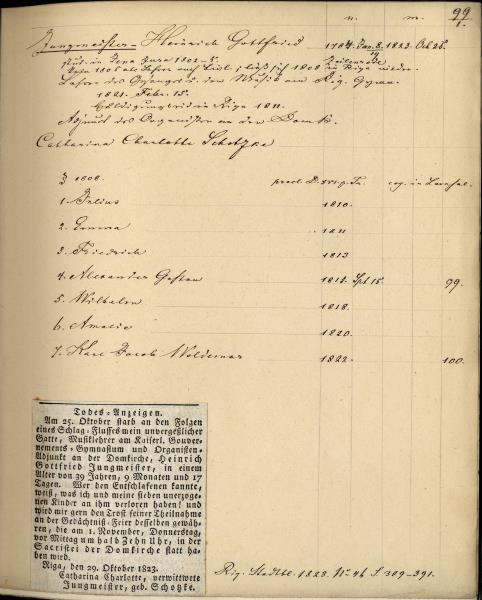 n. m. 99
1.
Jungmeister, Heinrich Gottfried 1784. Jan. 8. 1823. Oct 25.
stud. in Jena 1802-5.
1805 1808 in Riga
Lehrer des Gesanges u. der Musik am Rig. Gymn.
1821. Febr. 15.
Huldigungseid in Riga 1811.
Adjunct des Organisten an der Domk.
Catharina Charlotte Schotzke
1808. procl. cop. in Lemsal.
1. Julius 1810.
2. Emma 1811
3. Friedrich 1813
4. Alexander Gustav 1814. Spt 15. 99.
5. Wilhelm 1818.
6. Amalie 1820.
7. Karl Jacob Woldemar 1822. 100.
Todes-Anzeigen.
Am 25. Oktober starb an den Folgen
eines Schlag-Flusses mein unvergeßlicher
Gatte, Musiklehrer am Kaiserl. Gouver-
nements-Gymnasium und Organisten-
Adjunkt an der Domkirche, Heinrich
Gottfried Jungmeister, in einem
Alter von 39 Jahren, 9 Monaten und 17
Tagen. Wer den Entschlafenen kannte,
weiß, was ich und meine sieben unerzoge-
nen Kinder an ihm verloren haben! und
wird mir gern den Trost seiner Theilnahme
an der Gedächtniß-Feier desselben gewäh-
ren, die am 1. November, Donnerstag,
vor Mittag um halb Zehn Uhr, in der
Sacristei der Domkirche statt ha-
ben wird.
Riga, den 29. Oktober 1823.
Catharina Charlotte, verwittwete
Jungmeister, geb. Schotzke.
Rig. Stadtbl. 1823. No 46 S. 389-391.